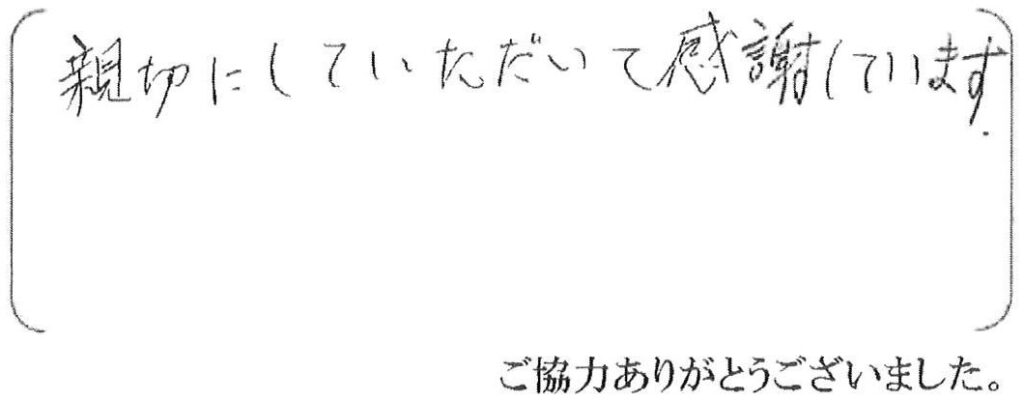 親切にしていただいて感謝しています.
ご協力ありがとうございました。